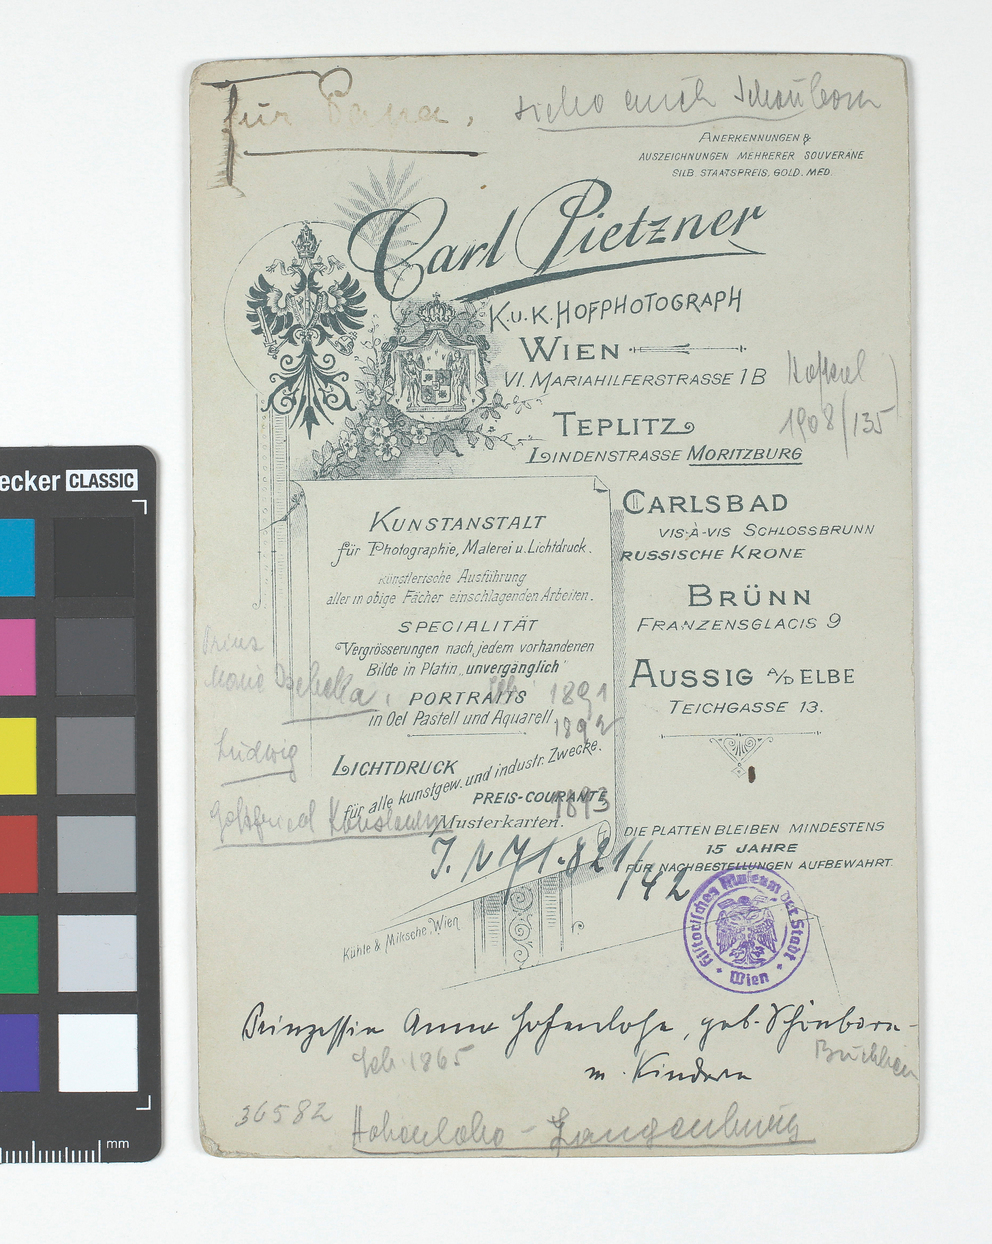 Für Papa,
siehe auch Schönborn
ANERKENNUNGEN &
AUSZEICHNUNGEN MEHRERER SOUVERÄNE
SILB. STAATSPREIS, GOLD. MED.
Carl Pietzner
K.u.K. HOFPHOTOGRAPH
WIEN
VI. MARIAHILFERSTRASSE 1B
1908/135
TEPLITZ
LINDENSTRASSE MORITZBURG
CARLSBAD
VIS-À-VIS SCHLOSSBRUNN
RUSSISCHE KRONE
BRÜNN
FRANZENSGLACIS 9
AUSSIG A/D ELBE
TEICHGASSE 13.
KUNSTANSTALT
für Photographie, Malerei u. Lichtdruck.
Künstlerische Ausführung
aller in obige Fächer einschlagenden Arbeiten.
SPECIALITÄT
Vergrösserungen nach jedem vorhandenen
Bilde in Platin „unvergänglich"
PORTRAITS
in Oel Pastell und Aquarell
LICHTDRUCK
für alle kunstgew. und industr. Zwecke.
PREIS-COURANTE
Musterkarten.
Prinz
Marie
geb. 1891
1892
Ludwig
1893
Gottfried
DIE PLATTEN BLEIBEN MINDESTENS
15 JAHRE
FÜR NACHBESTELLUNGEN AUFBEWAHRT.
I. N 71.821/42
Kühle & Miksche, Wien
Historisches Museum der Stadt
Wien
Prinzessin Anna Hohenlohe, geb. Schönborn-
Buchheim
geb. 1865
m. Kindern
36582
Hohenlohe - Langenburg
ecker CLASSIC
mm